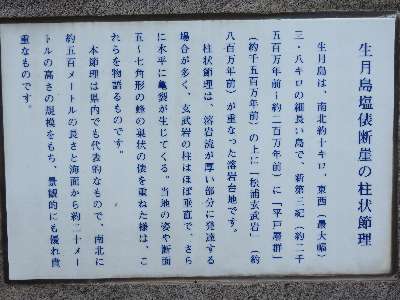 生月島塩俵断崖の柱状節理
生月島は、南北約十キロ、東西（最大幅）
三・八キロの細長い島で、新第三紀（約二千
五百万年前〜約二百万年前）に「平戸層群」
（約千五百万年前）の上に「松浦玄武岩」（約
八百万年前）が重なった溶岩台地です。
柱状節理は、溶岩流が厚い部分に発達する
場合が多く、玄武岩の柱はほぼ垂直で、さら
に水平に亀裂が生じてくる。当地の姿や断面
五〜七角形の蜂の巣状の俵を重ねた様は、こ
れらを物語るものです。
本節理は県内でも代表的なもので、南北に
約五百メートルの長さと海面から約二十メー
トルの高さの規模をもち、景観的にも優れ貴
重なものです。